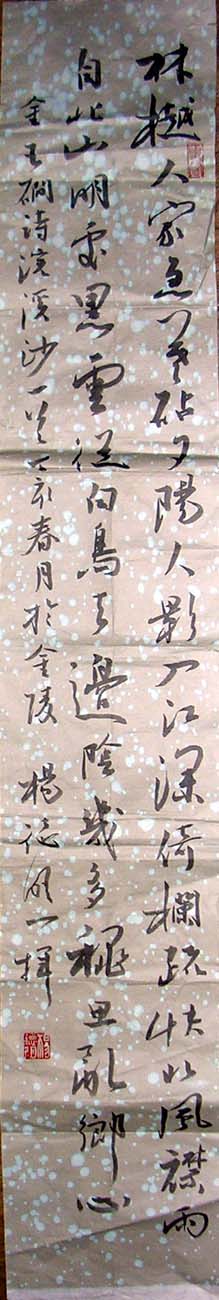 林樾人家急暮砧夕陽人影入江深倚欄疏快北風襟雨
自北山明處黑雲從白鳥去邊陰幾多穐思亂鄉心
金王磵詩浣溪沙一首丁亥春月於金陵 楊德一揮